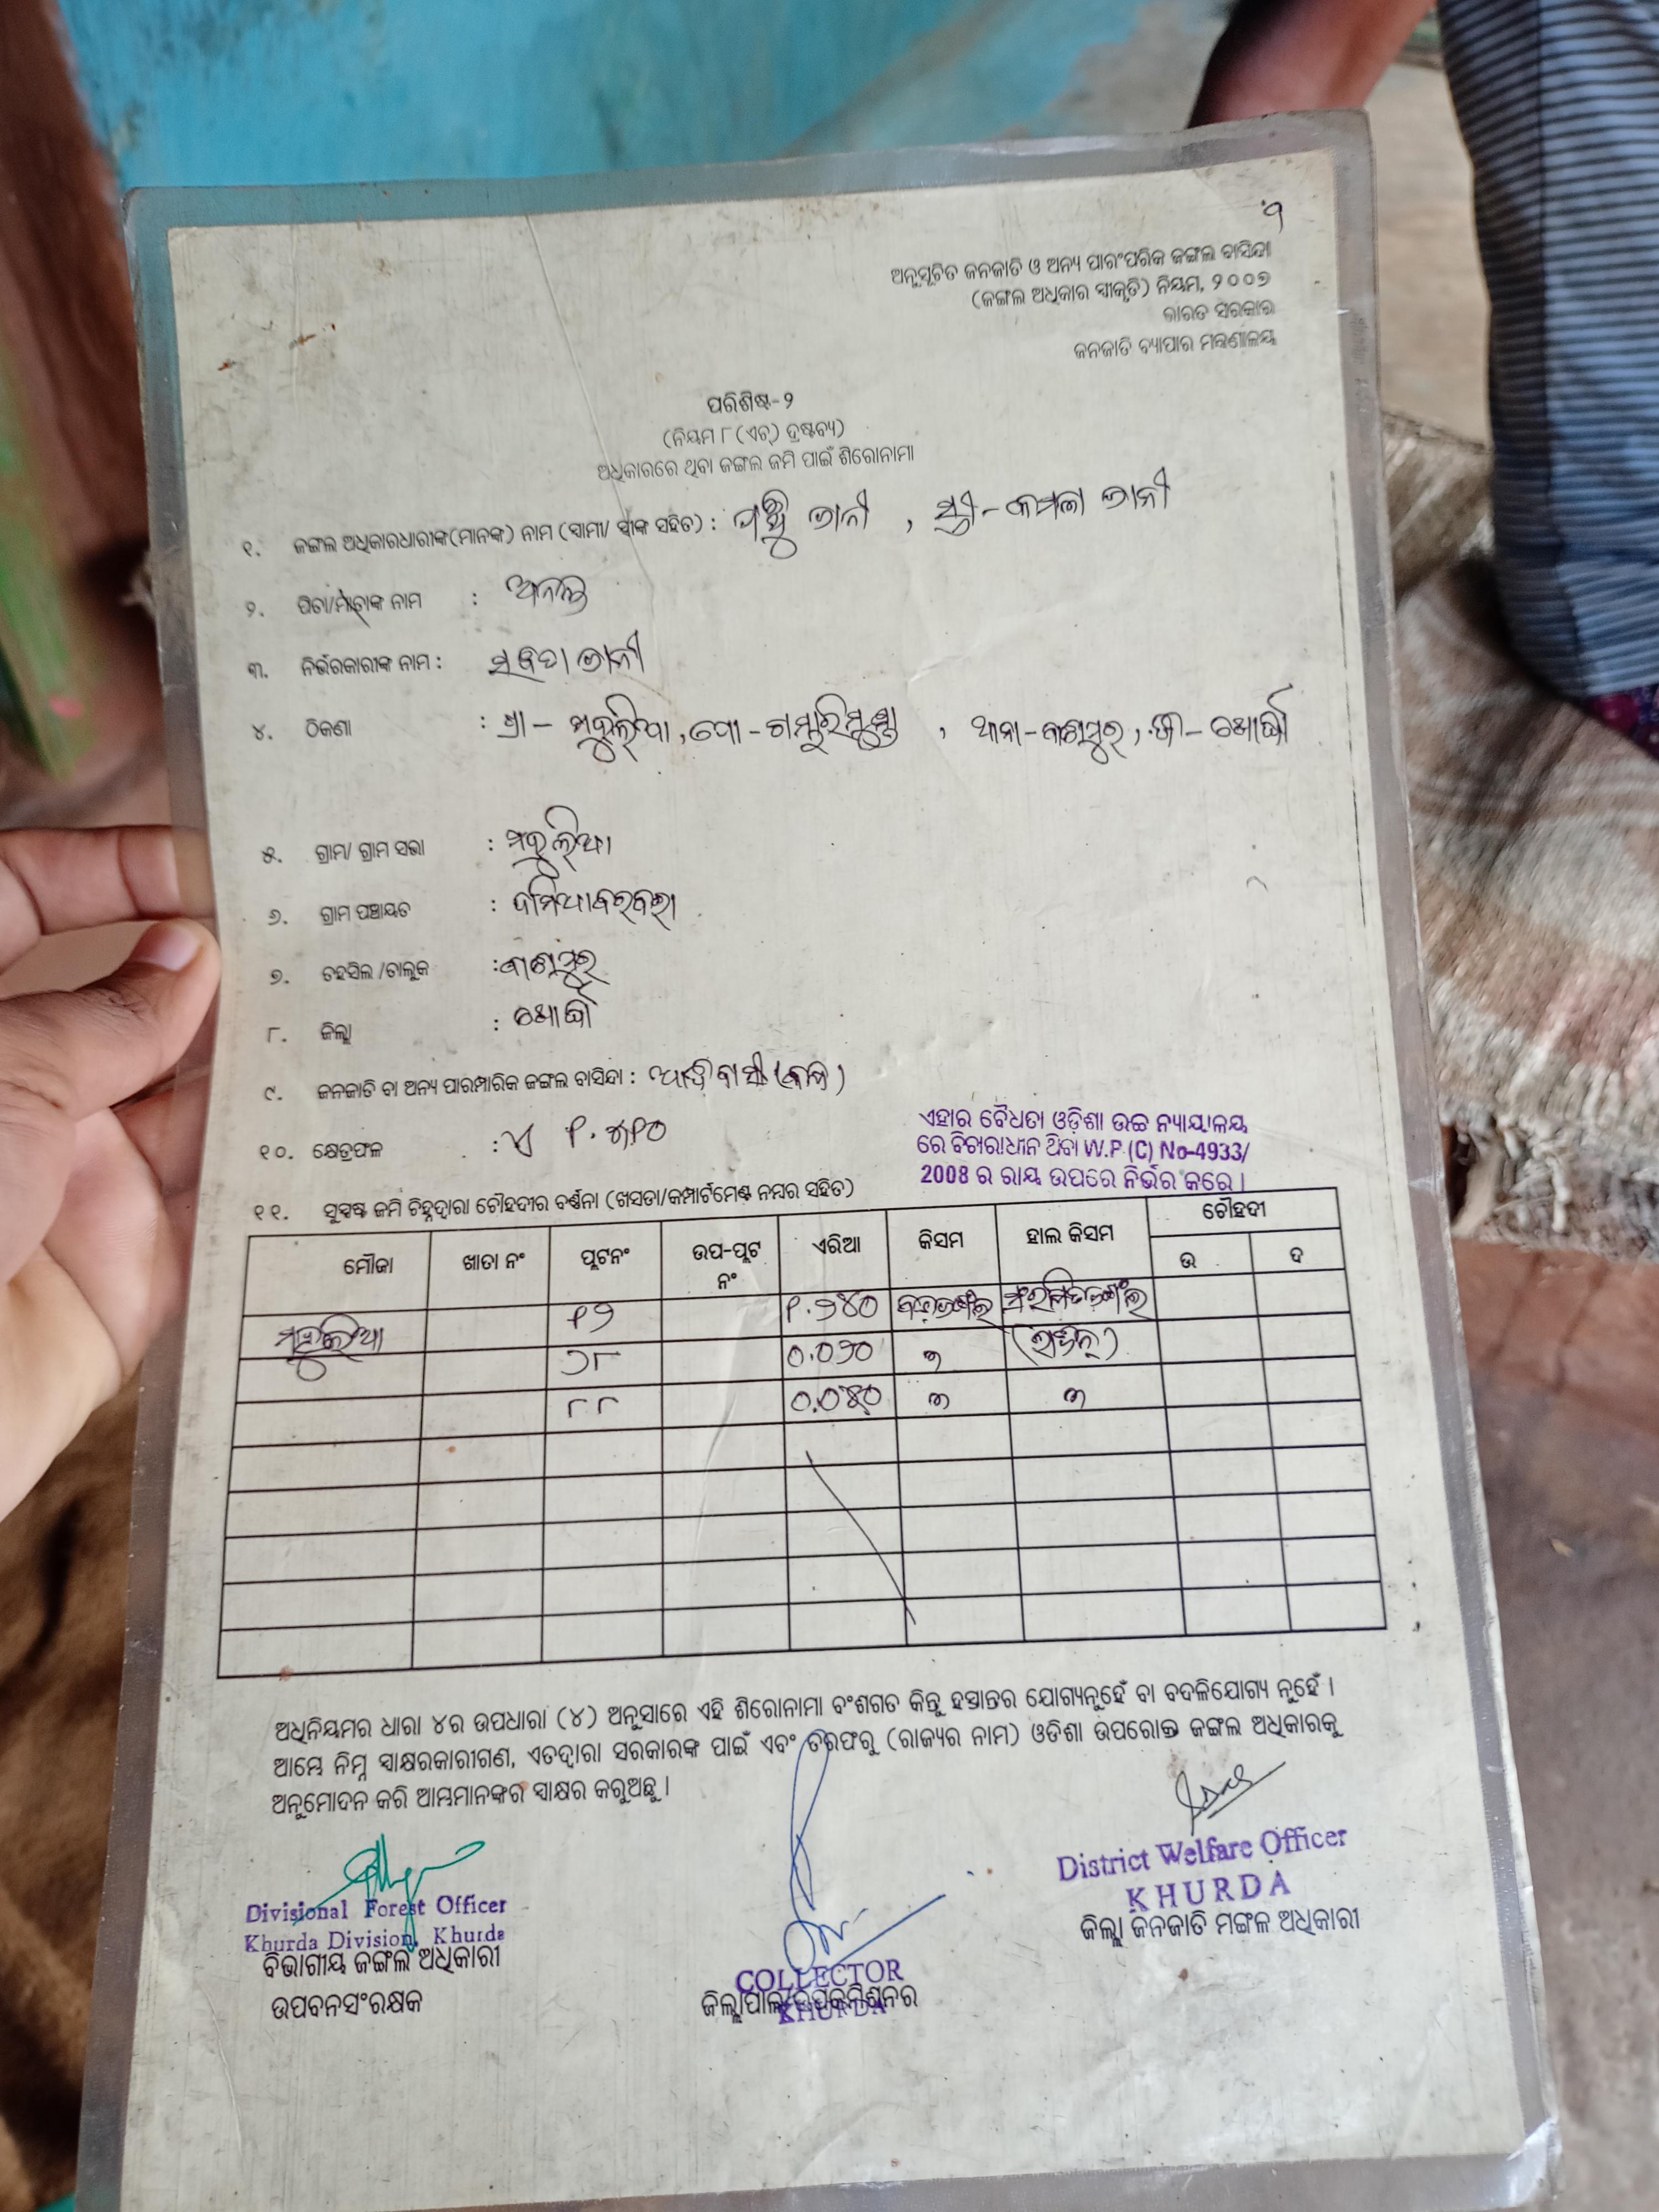 ୩
ଅନୁସୂଚିତ ଜନଜାତି ଓ ଅନ୍ୟ ପାରଂପରିକ ଜଙ୍ଗଲ ବାସିନ୍ଦା
(ଜଙ୍ଗଲ ଅଧିକାର ସ୍ୱୀକୃତି) ନିୟମ, ୨୦୦୭
ଭାରତ ସରକାର
ଜନଜାତି ବ୍ୟାପାର ମନ୍ତ୍ରଣାଳୟ
ପରିଶିଷ୍ଟ-୨
(ନିୟମ ୮ (ଏଚ୍) ଦ୍ରଷ୍ଟବ୍ୟ)
ଅଧିକାରରେ ଥିବା ଜଙ୍ଗଲ ଜମି ପାଇଁ ଶିରୋନାମା
୧. ଜଙ୍ଗଲ ଅଧିକାରଧାରୀଙ୍କ(ମାନଙ୍କ) ନାମ (ସ୍ୱାମୀ/ ସ୍ତ୍ରୀଙ୍କ ସହିତ) : ଜାନୀ , ସ୍ତ୍ରୀ- କମଳା ଜାନୀ
୨. ପିତା/ମାତାଙ୍କ ନାମ : ଅନନ୍ତ
୩. ନିର୍ଭରକାରୀଙ୍କ ନାମ : ଜାନୀ
୪. ଠିକଣା : ଗ୍ରା - ମହୁଲିଆ, ପୋ - ଗମ୍ଭାରିମୁଣ୍ଡା , ଥାନା - ବାଣପୁର, ଜି - ଖୋର୍ଦ୍ଧା
୫. ଗ୍ରାମ/ ଗ୍ରାମ ସଭା : ମହୁଲିଆ
୬. ଗ୍ରାମ ପଞ୍ଚାୟତ : ଦାମିଆବରବରା
୭. ତହସିଲ /ତାଲୁକ : ବାଣପୁର
୮. ଜିଲ୍ଲା : ଖୋର୍ଦ୍ଧା
୯. ଜନଜାତି ବା ଅନ୍ୟ ପାରମ୍ପାରିକ ଜଙ୍ଗଲ ବାସିନ୍ଦା : ଆଦିବାସୀ (କନ୍ଧ)
୧୦. କ୍ଷେତ୍ରଫଳ : ଏ
ଏହାର ବୈଧତା ଓଡ଼ିଶା ଉଚ୍ଚ ନ୍ୟାୟାଳୟ
ରେ ବିଚାରାଧୀନ ଥିବା W.P.(C) No-4933/
2008 ର ରାୟ ଉପରେ ନିର୍ଭର କରେ ।
୧୧. ସୁସ୍ପଷ୍ଟ ଜମି ଚିହ୍ନଦ୍ୱାରା ଚୌହଦୀର ବର୍ଣ୍ଣନା (ଖସଡା/କମ୍ପାର୍ଟମେଣ୍ଟ ନମ୍ବର ସହିତ)
ମୌଜା ଖାତା ନଂ ପ୍ଲଟନଂ ଉପ-ପ୍ଲଟ ନଂ ଏରିଆ କିସମ ହାଲ କିସମ ଚୌହଦୀ
ଉ ଦ
ମହୁଲିଆ ୧୨ ୧.୨୪୦
୨୮ ୦.୦୨୦
୮୮
ଅଧିନିୟମର ଧାରା ୪ର ଉପଧାରା (୪) ଅନୁସାରେ ଏହି ଶିରୋନାମା ବଂଶଗତ କିନ୍ତୁ ହସ୍ତାନ୍ତର ଯୋଗ୍ୟନୁହେଁ ବା ବଦଳିଯୋଗ୍ୟ ନୁହେଁ ।
ଆମ୍ଭେ ନିମ୍ନ ସ୍ୱାକ୍ଷରକାରୀଗଣ, ଏତଦ୍ୱାରା ସରକାରଙ୍କ ପାଇଁ ଏବଂ ତରଫରୁ (ରାଜ୍ୟର ନାମ) ଓଡିଶା ଉପରୋକ୍ତ ଜଙ୍ଗଲ ଅଧିକାରକୁ
ଅନୁମୋଦନ କରି ଆମ୍ଭମାନଙ୍କର ସ୍ୱାକ୍ଷର କରୁଅଛୁ ।
Divisional Forest Officer
Khurda Division, Khurda
ବିଭାଗୀୟ ଜଙ୍ଗଲ ଅଧିକାରୀ
ଉପବନସଂରକ୍ଷକ
COLLECTOR
ଜିଲ୍ଲାପାଳ/ଉପକମିଶନର
KHURDA
District Welfare Officer
KHURDA
ଜିଲ୍ଲା ଜନଜାତି ମଙ୍ଗଳ ଅଧିକାରୀ